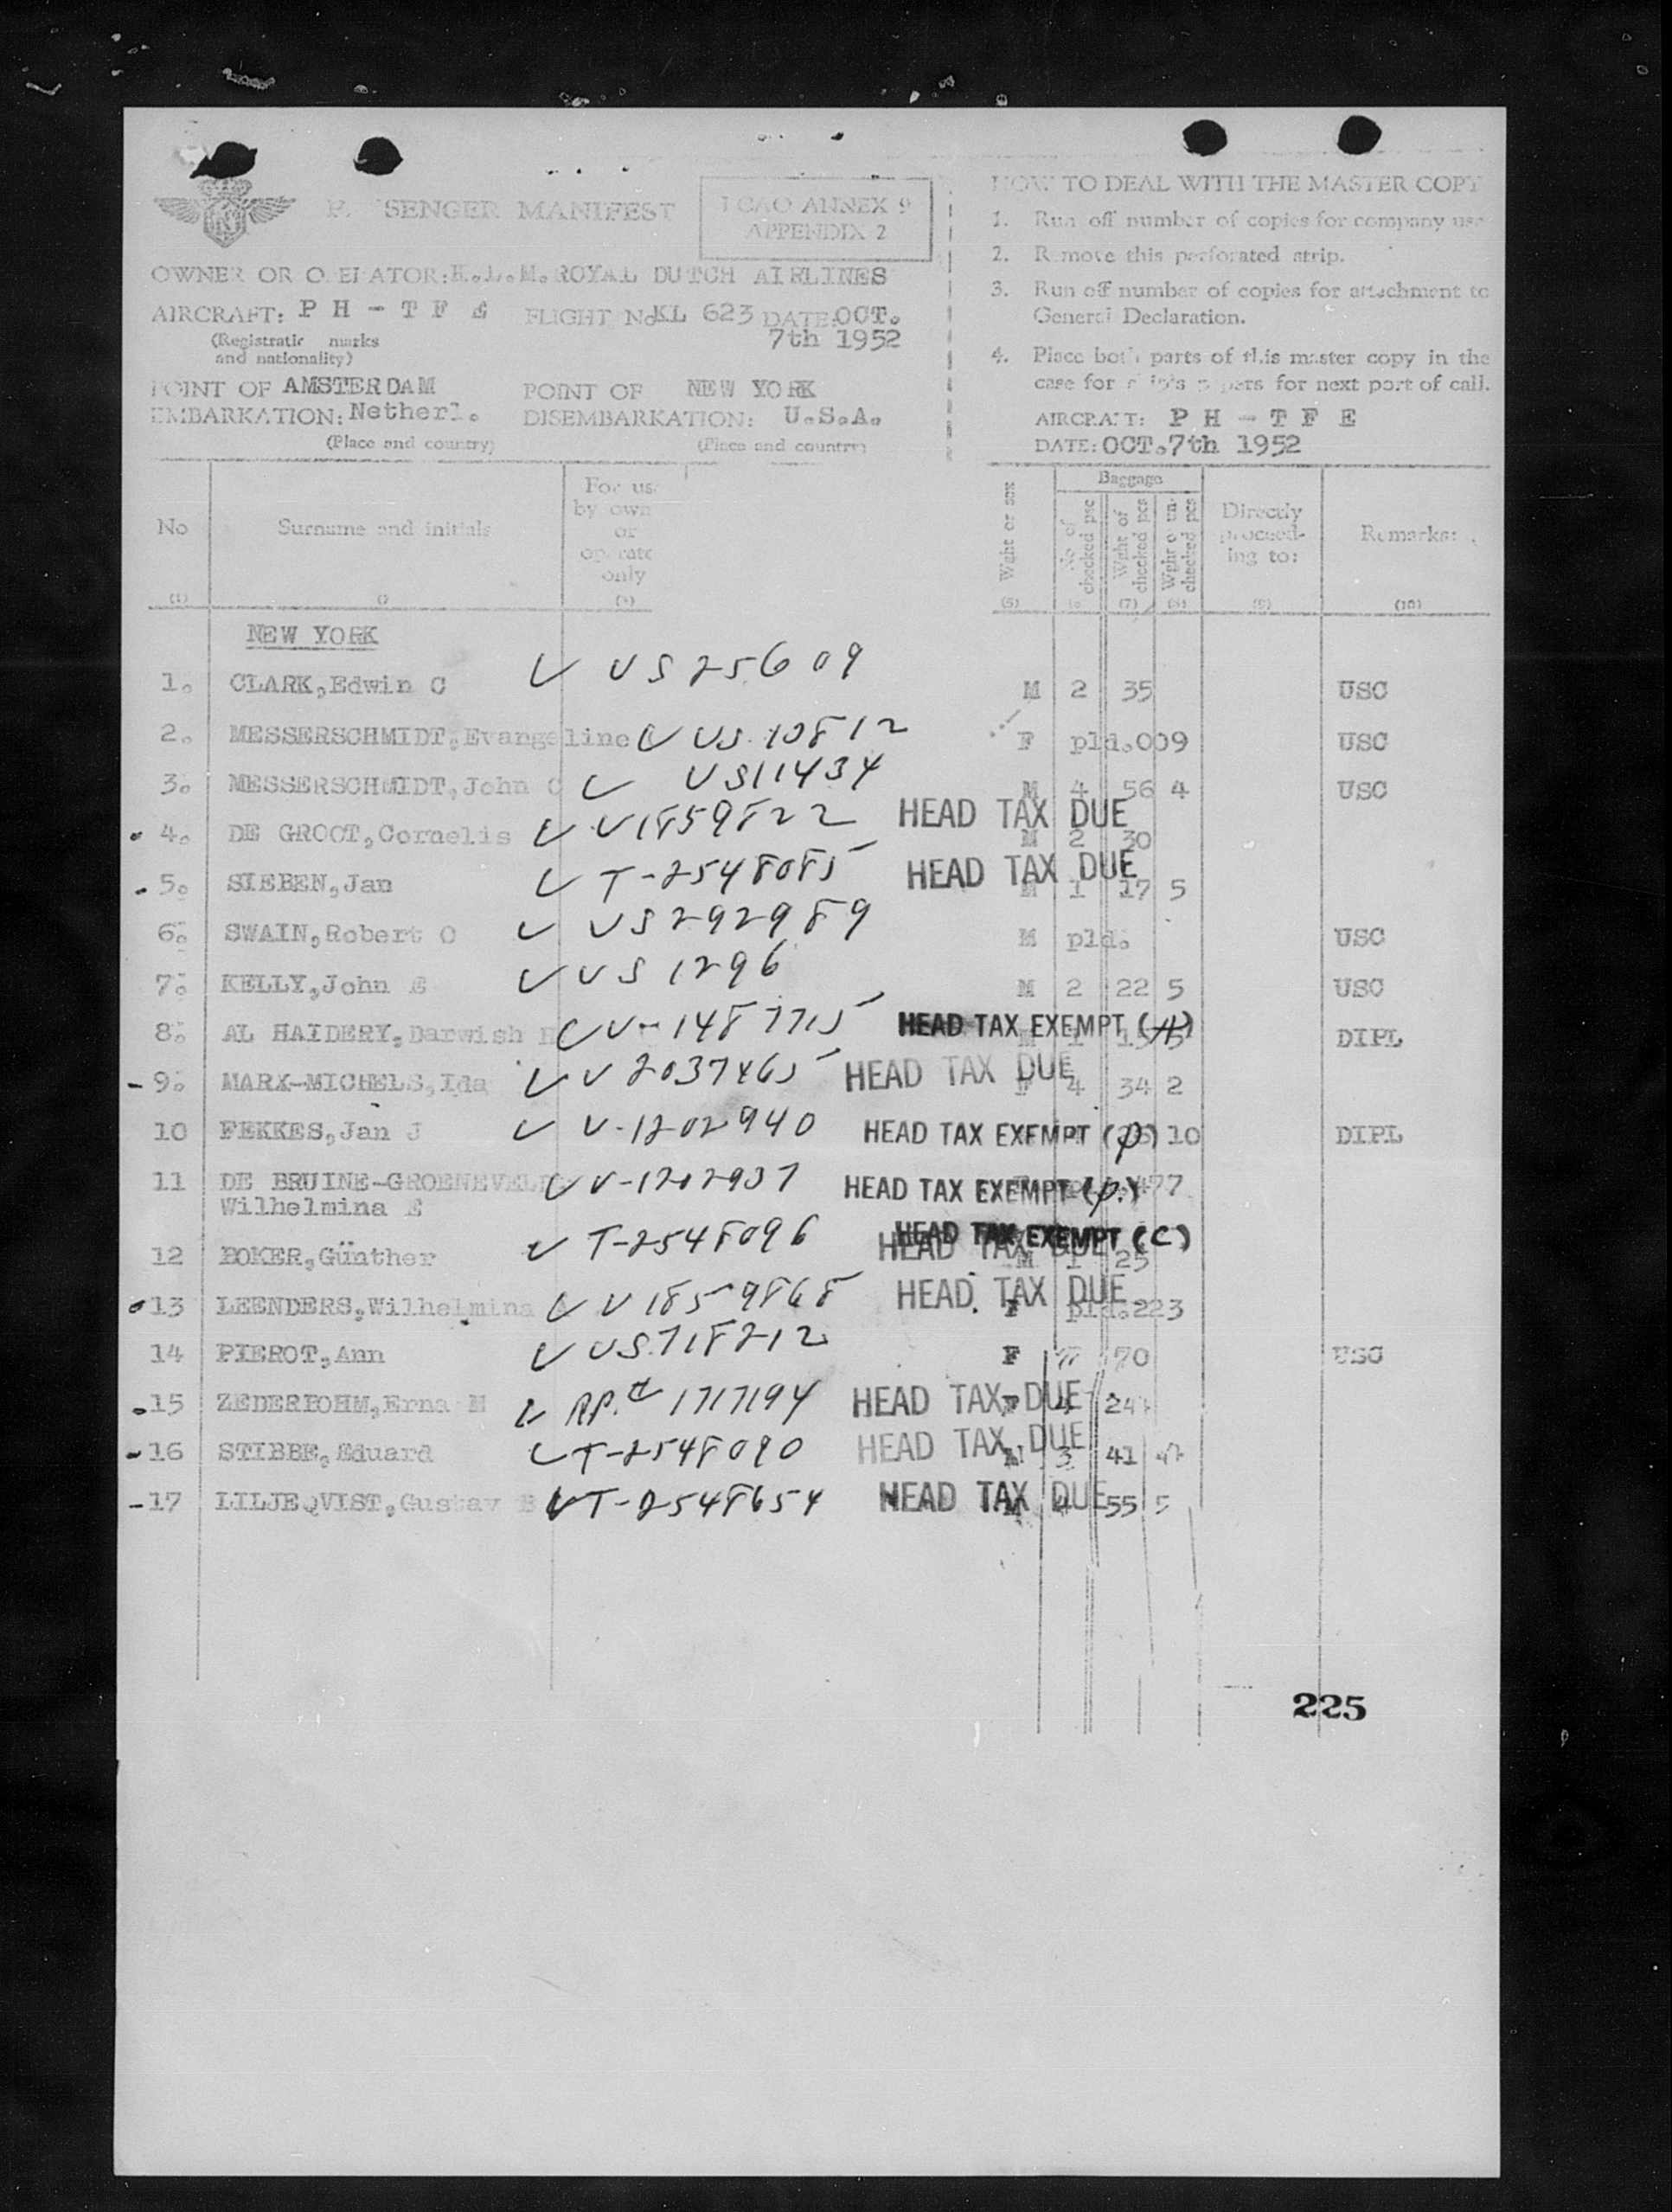 PASSENGER MANIFEST
ICAO ANNEX 9
APPENDIX 2
OWNER OR OPERATOR: K.L.M. ROYAL DUTCH AIRLINES
AIRCRAFT: P H - T F E FLIGHT No KL 623 DATE: OCT.
7th 1952
(Registration marks
and nationality)
POINT OF AMSTERDAM POINT OF NEW YORK
EMBARKATION: Netherl. DISEMBARKATION: U.S.A.
(Place and country) (Place and country)
HOW TO DEAL WITH THE MASTER COPY
1. Run off number of copies for company use
2. Remove this perforated strip.
3. Run off number of copies for attachment to
General Declaration.
4. Place both parts of this master copy in the
case for papers for next port of call.
AIRCRAFT: P H - T F E
DATE: OCT.7th 1952
No Surname and initials For use by own or operate only Wght or sex Baggage No of checked pcs Wght of checked pcs Wght of un-checked pcs Directly proceed-ing to: Remarks:
(1) (5) (7) (8) (9) (10)
NEW YORK
1. CLARK,Edwin C US 25609 M 2 35 USC
2. MESSERSCHMIDT,Evangeline US 10812 F pld.009 USC
3. MESSERSCHMIDT,John C US11434 M 4 56 4 USC
4. DE GROOT,Cornelis V1859822 HEAD TAX DUE M 2 30
5. SIEBEN,Jan T-2548085 HEAD TAX DUE M 1 17 5
6. SWAIN,Robert O US292989 M pld. USC
7. KELLY,John E US1296 M 2 22 5 USC
8. AL HAIDERY,Darwish V-1487715 HEAD TAX EXEMPT (H) DIPL
9. MARX-MICHELS,Ida V2037465 HEAD TAX DUE F 4 34 2
10 FEKKES,Jan J V-1202940 HEAD TAX EXEMPT (P) 10 DIPL
11 DE BRUINE-GROENEVELD V-1202937 HEAD TAX EXEMPT (P.)
Wilhelmina E
12 BOKER,Günther T-2548096 HEAD TAX DUE HEAD TAX EXEMPT (C) M 1 25
13 LEENDERS,Wilhelmina V1859868 HEAD TAX DUE F pld.223
14 PIEROT,Ann US718212 F 70 USC
15 ZEDERBOHM,Erna M RP.# 1717194 HEAD TAX DUE F 24
16 STIBBE,Eduard T-2548090 HEAD TAX DUE M 3 41
17 LILJEQVIST,Gustav B T-2548654 HEAD TAX DUE 55 5
225